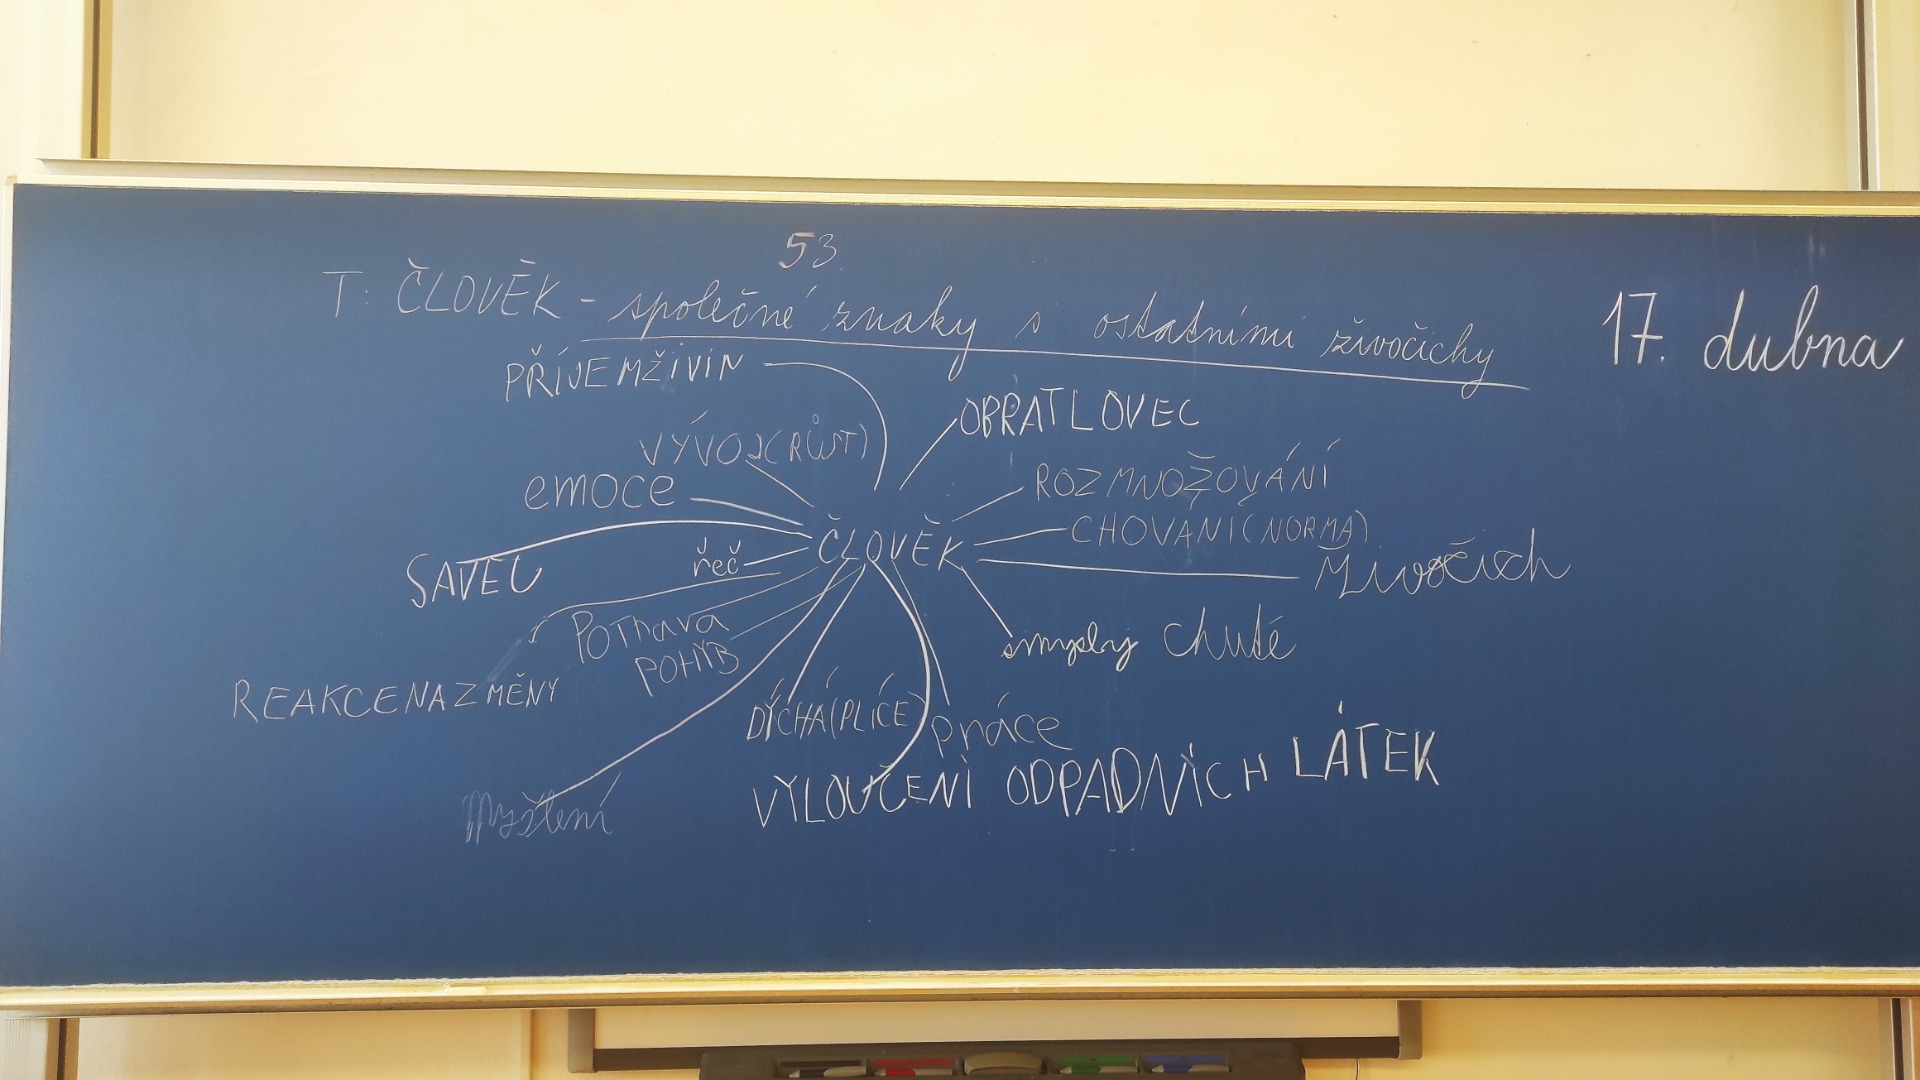 53
T: ČLOVĚK - společné znaky s ostatními živočichy
17. dubna
PŘÍJEM ŽIVIN
OBRATLOVEC
VÝVOJ (RŮST)
ROZMNOŽOVÁNÍ
emoce
CHOVÁNÍ (NORMA)
ČLOVĚK
SAVEC
řeč
Živočich
Potrava
smysly chutě
POHYB
REAKCE NA ZMĚNY
DÝCHÁ (PLÍCE)
práce
VYLOUČENÍ ODPADNÍCH LÁTEK
Myšlení